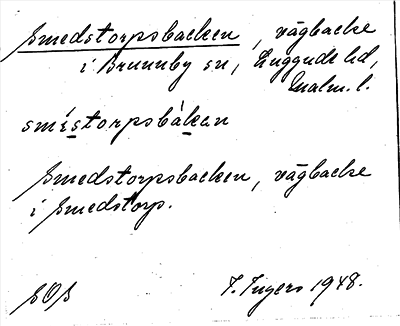 Smedstorpsbacken, vägbacke
i Brunnby sn, Luggude hd,
Malm. l.
smístorpsbákan
Smedstorpsbacken, vägbacke
i Smedstorp.
SOS
I. Ingers 1948.